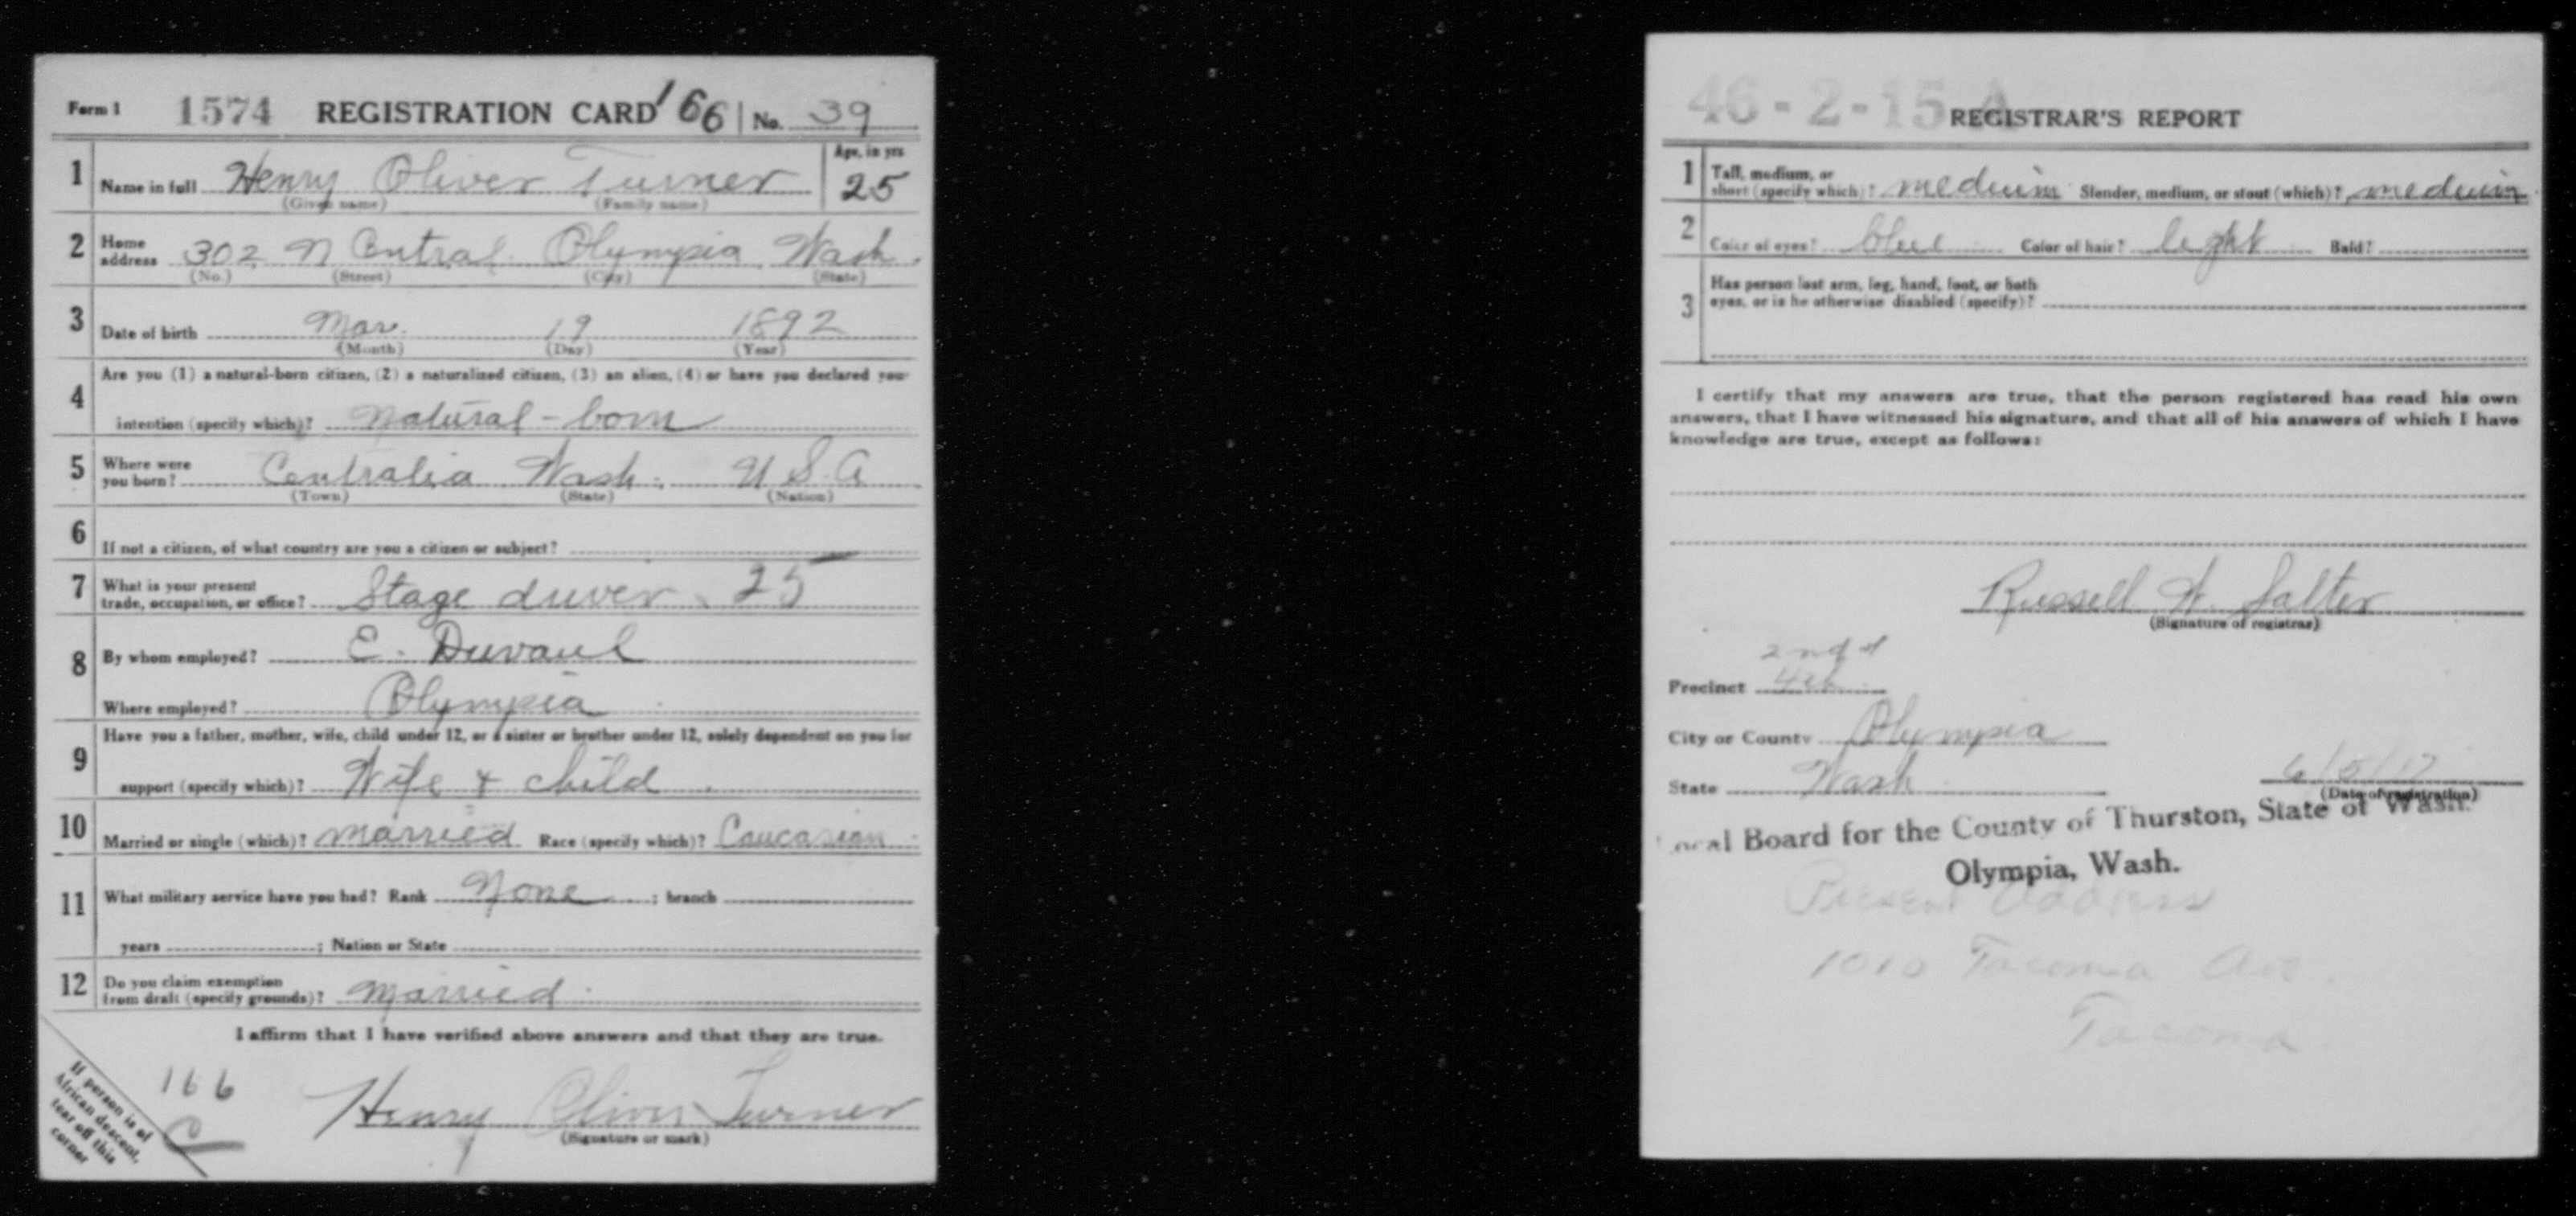 Form 1 1574 REGISTRATION CARD 166 No. 39
1 Name in full Henry Oliver Turner Age, in yrs 25
(Given name) (Family name)
2 Home address 302 N Central Olympia Wash.
(No.) (Street) (City) (State)
3 Date of birth Mar. 19 1892
(Month) (Day) (Year)
4 Are you (1) a natural-born citizen, (2) a naturalized citizen, (3) an alien, (4) or have you declared your
intention (specify which)? Natural-born
5 Where were you born? Centralia Wash. U S A
(Town) (State) (Nation)
6 If not a citizen, of what country are you a citizen or subject?
7 What is your present trade, occupation, or office? Stage driver 25
8 By whom employed? E. Duvaul
Where employed? Olympia
9 Have you a father, mother, wife, child under 12, or a sister or brother under 12, solely dependent on you for
support (specify which)? Wife + child.
10 Married or single (which)? married Race (specify which)? Caucasian
11 What military service have you had? Rank None ; branch
years ; Nation or State
12 Do you claim exemption from draft (specify grounds)? Married
I affirm that I have verified above answers and that they are true.
166
C
Henry Oliver Turner
(Signature or mark)
If person is of
African descent,
tear off this
corner
46-2-15 A REGISTRAR'S REPORT
1 Tall, medium, or short (specify which)? medium Slender, medium, or stout (which)? medium
2 Color of eyes? blue Color of hair? light Bald?
3 Has person lost arm, leg, hand, foot, or both
eyes, or is he otherwise disabled (specify)?
I certify that my answers are true, that the person registered has read his own
answers, that I have witnessed his signature, and that all of his answers of which I have
knowledge are true, except as follows:
Russell W. Salter
(Signature of registrar)
2nd of
Precinct 4th
City or County Olympia
State Wash 6/5/17
(Date of registration)
Local Board for the County of Thurston, State of Wash.
Olympia, Wash.
Present Address
1010 Tacoma Ave.
Tacoma